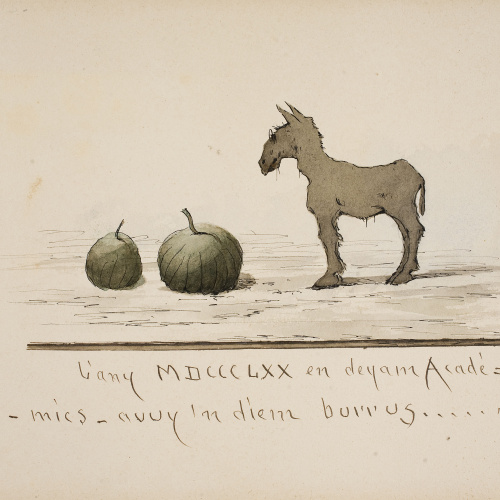 L'any MDCCCLXX en deyam Acadé=
-mics - avuy 'n diem burrus.....